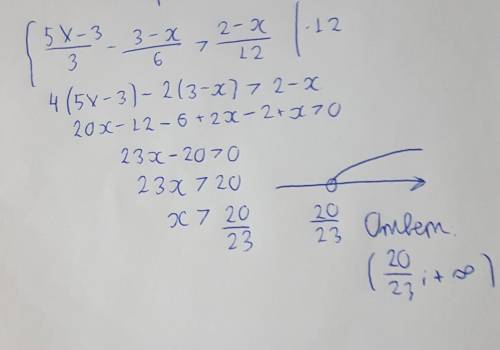 { (5x-3)/3 - (3-x)/6 > (2-x)/12 | ·12
4(5x-3)-2(3-x)>2-x
20x-12-6+2x-2+x>0
23x-20>0
23x>20
x> 20/23
20/23
Ответ.
(20/23; +∞)